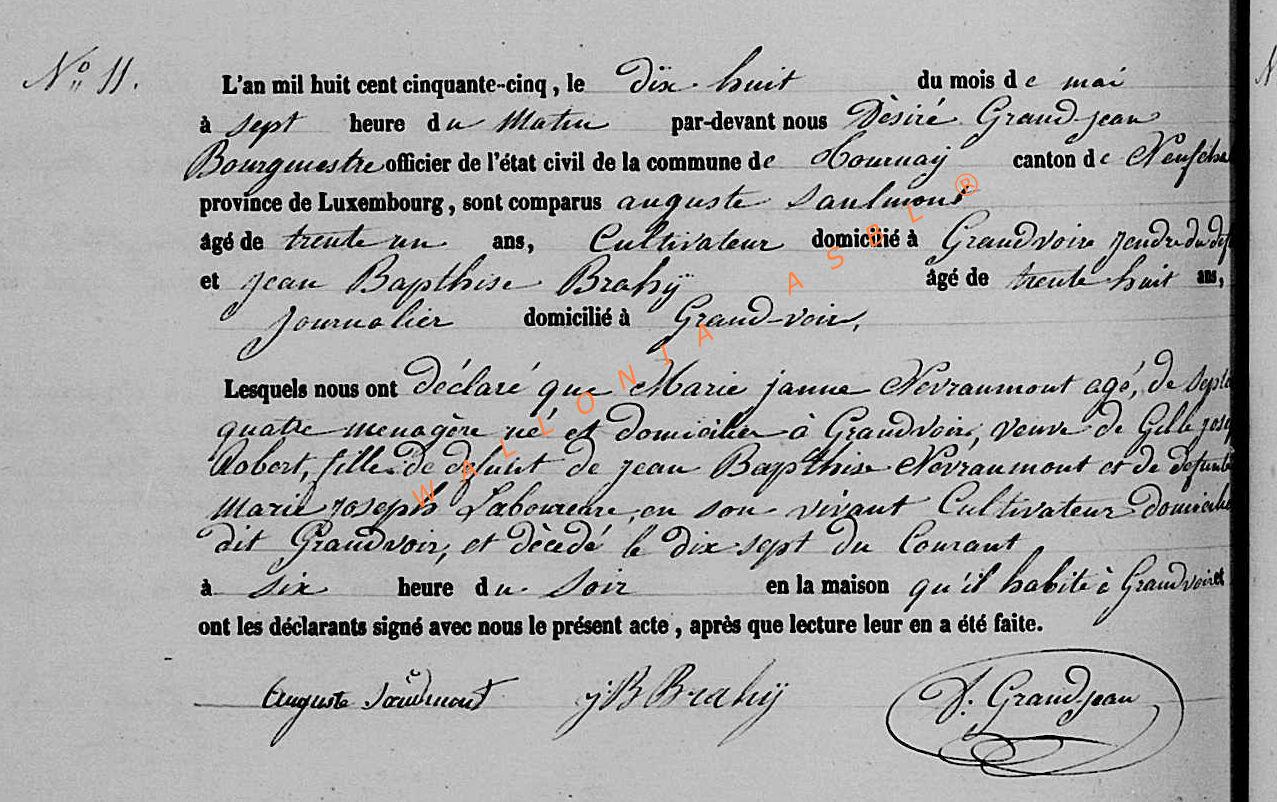 N° 11.
L'an mil huit cent cinquante-cinq, le dix huit du mois de mai
à sept heure du Matin par-devant nous Dèsiré Grand-jean
Bourgmestre officier de l'état civil de la commune de Tournaÿ canton de Neufcha
province de Luxembourg, sont comparus auguste Saulmont
âgé de trente un ans, Cultivateur domicilié à Grandvoir jendre du def
et jean Bapthise Brahÿ âgé de trente huit ans,
journalier domicilié à Grand-voir,
Lesquels nous ont déclaré que Marie janne Nevraumont agé, de septa
quatre menagère né et domicilier à Grandvoir, veuve de Gille jose
Robert, fille de defunt de jean Bapthise Nevraumont et de defunte
Marie Joseph en son vivant Cultivateur domicilie
dit Grandvoir, et dècèdé le dix-sept du Courant
à six heure du Soir en la maison qu'il habite à Grandvoir et
ont les déclarants signé avec nous le présent acte, après que lecture leur en a été faite.
Auguste Saulmont jB Brahÿ D. Grandjean
WALLONIA ASBL ®